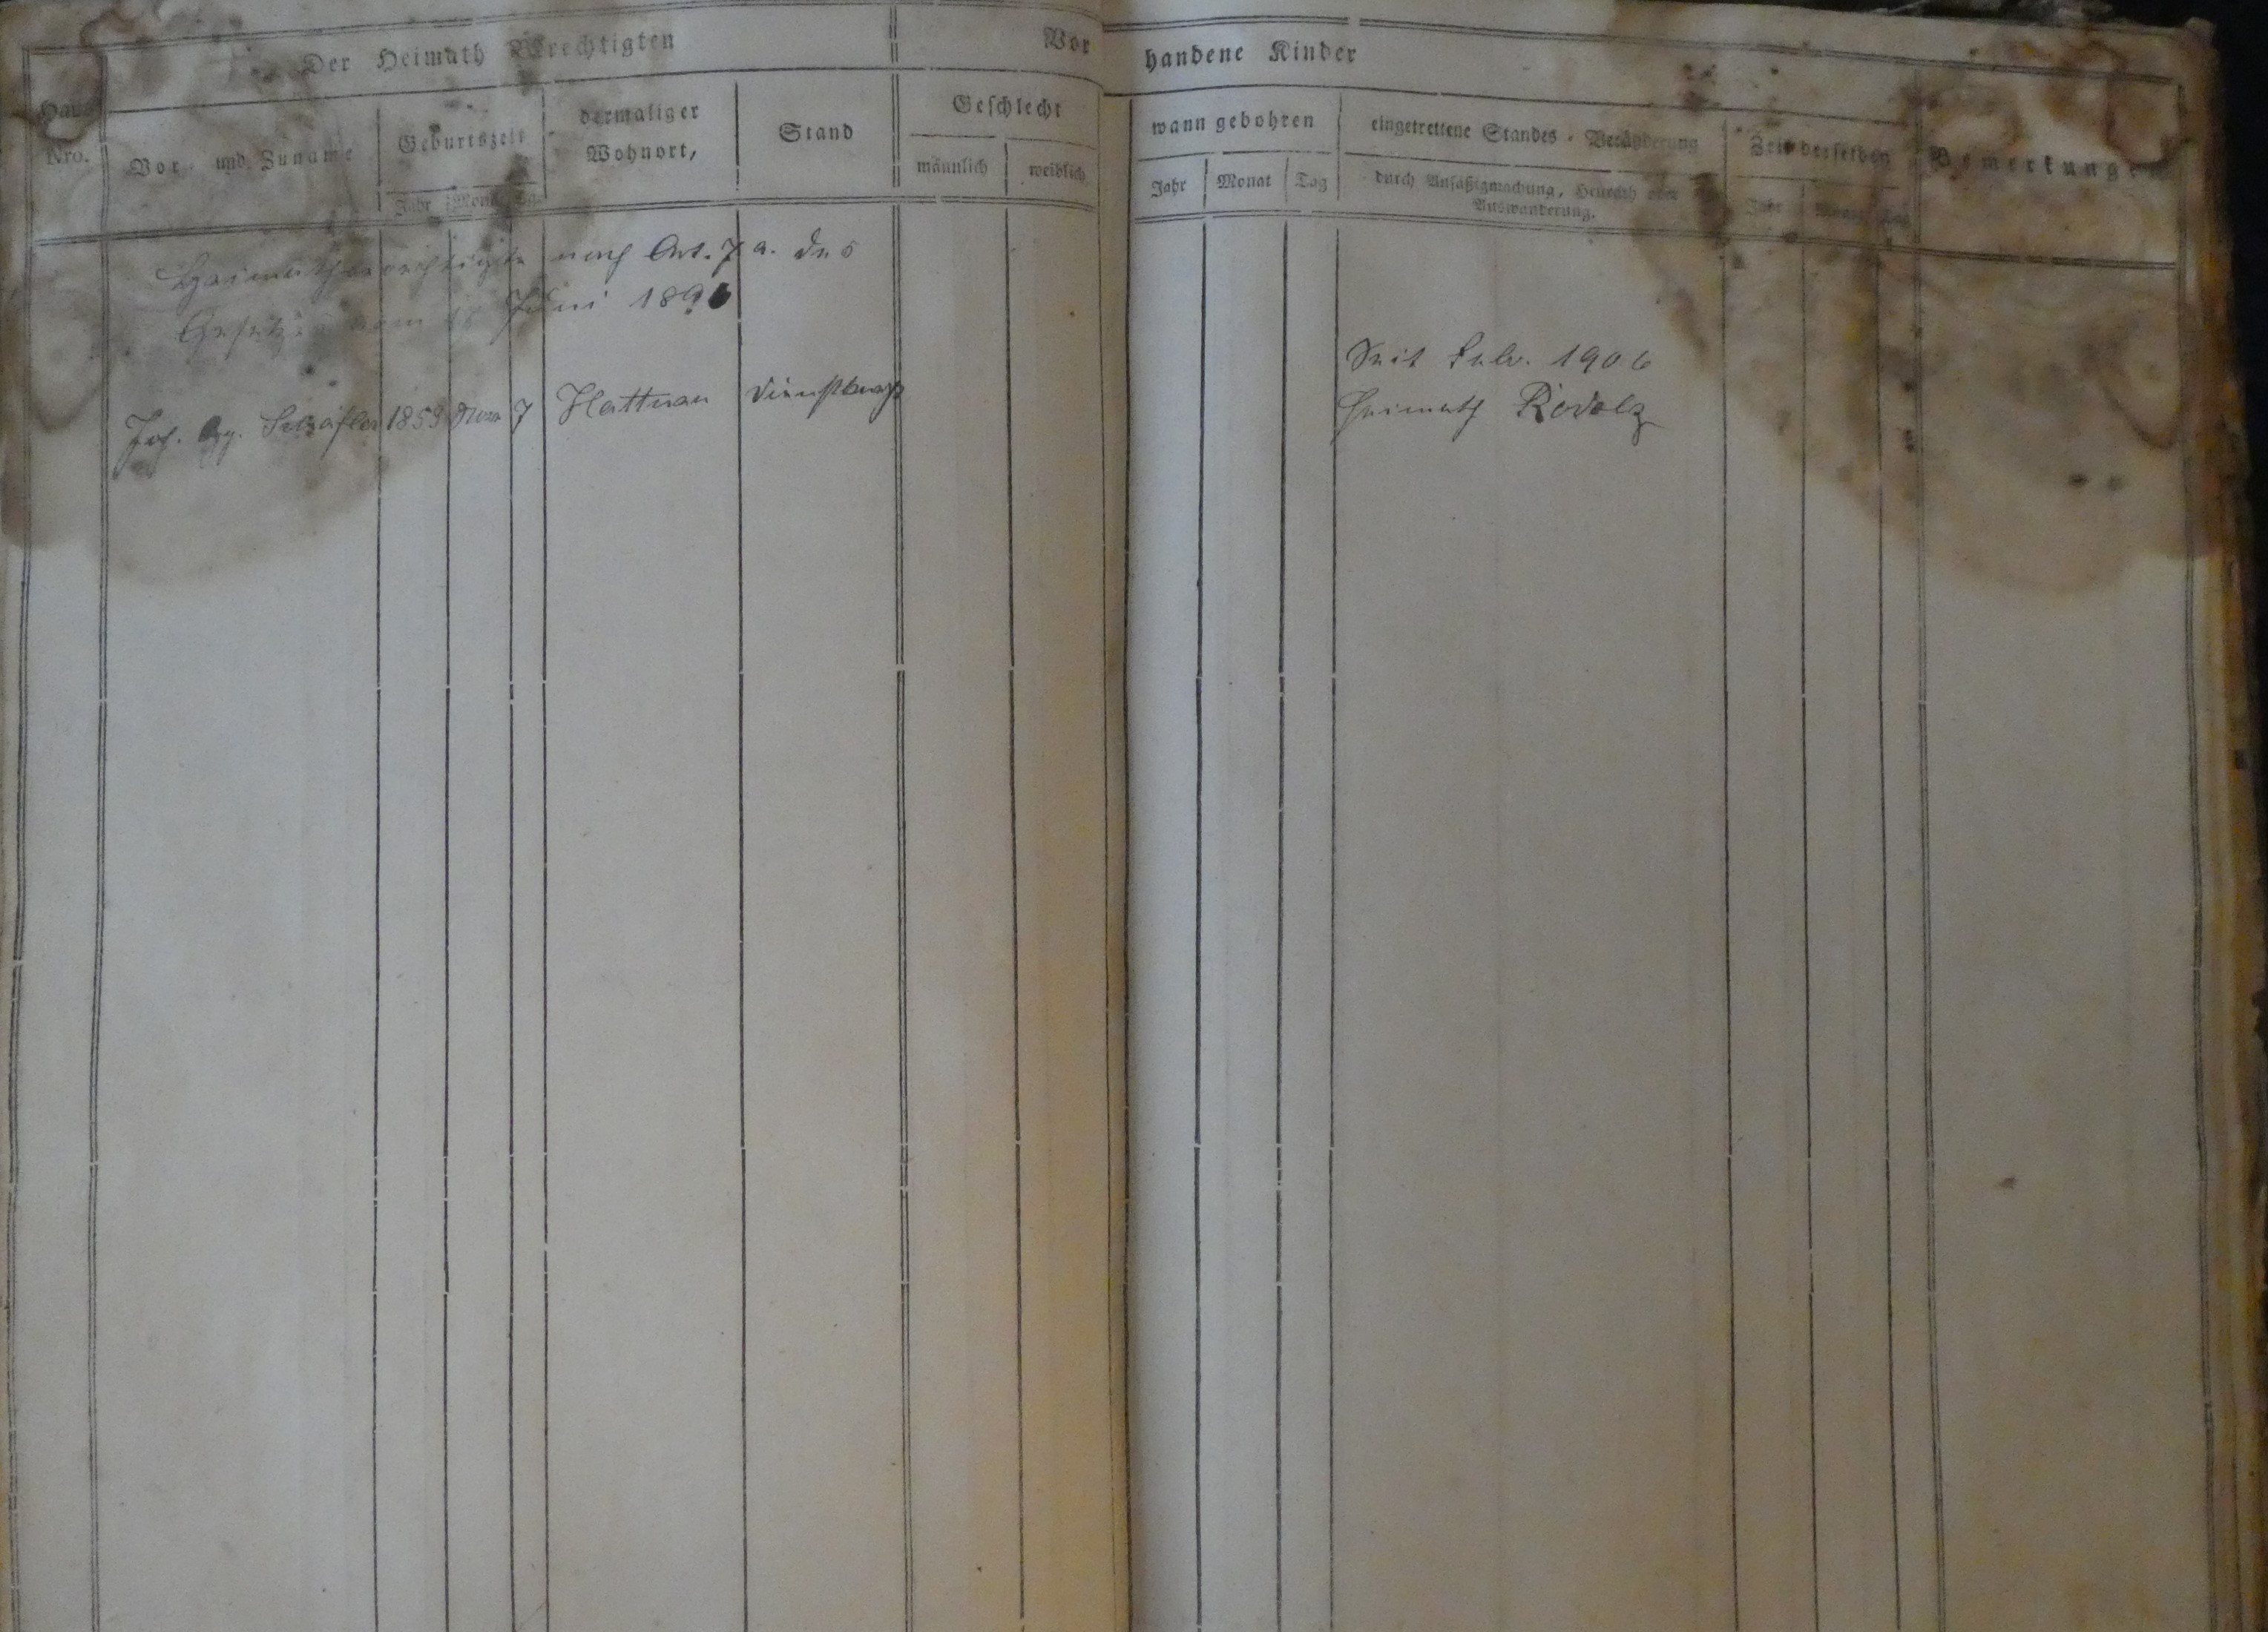 Der Heimath Berechtigten
Vorhandene Kinder
Haus Nro.
Vor- und Zuname
Geburtszeit
Jahr Monat Tag
dermaliger
Wohnort,
Stand
Geschlecht
männlich weiblich
wann gebohren
Jahr Monat Tag
eingetrettene Standes-Veränderung
durch Ansäßigmachung, Heurath oder
Auswanderung.
Zeit derselben
Jahr Monat Tag
Bemerkungen
Heimathberechtigte nach Art. 7 a. des
Gesetzes vom Juni 1896
Joh. Gg. 1859 7 Hattnau Dienstknecht
Seit Febr. 1906
Heimath Ridolz